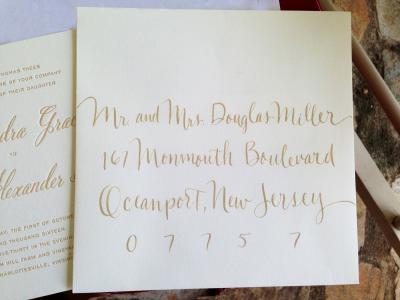 THOMAS THEES
OF YOUR COMPANY
OF THEIR DAUGHTER
Grac
TO
Alexander
THE FIRST OF OCTOB
THOUSAND SIXTEEN
THIRTY IN THE EVENIN
HILL FARM AND VINEYA
CHARLOTTESVILLE, VIRGIN
Mr. and Mrs. Douglas Miller
167 Monmouth Boulevard
Oceanport, New Jersey
0 7 7 5 7